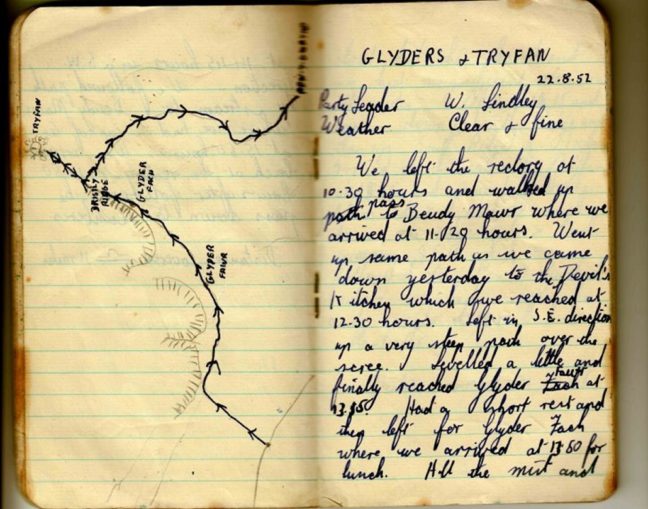 TRYFAN
BRISTLY
RIDGE
GLYDER
FACH
GLYDER
FAWR
GLYDERS & TRYFAN
22.8.52
Party Leader W. Lindley
Weather Clear & fine
We left the rectory at
10.30 hours and walked up
pass
path to Beudy Mawr where we
arrived at 11.20 hours. Went
up same path as we came
down yesterday to the Devil's
Kitchen which we reached at
12.30 hours. Left in S.E. direction
up a very steep path over the
scree. Levelled a little and
fawr
finally reached Glyder Fach at
13.15 Had a short rest and
then left for Glyder Fach
where we arrived at 13.50 for
lunch. All the mist and